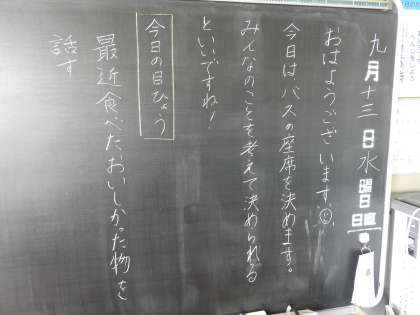 九月十三日水曜日
日直
おはようございます。
今日は、バスの座席を決めます。
みんなのことを考えて決められる
といいですね!
今日の目ひょう
最近食べた、おいしかった物を
話す